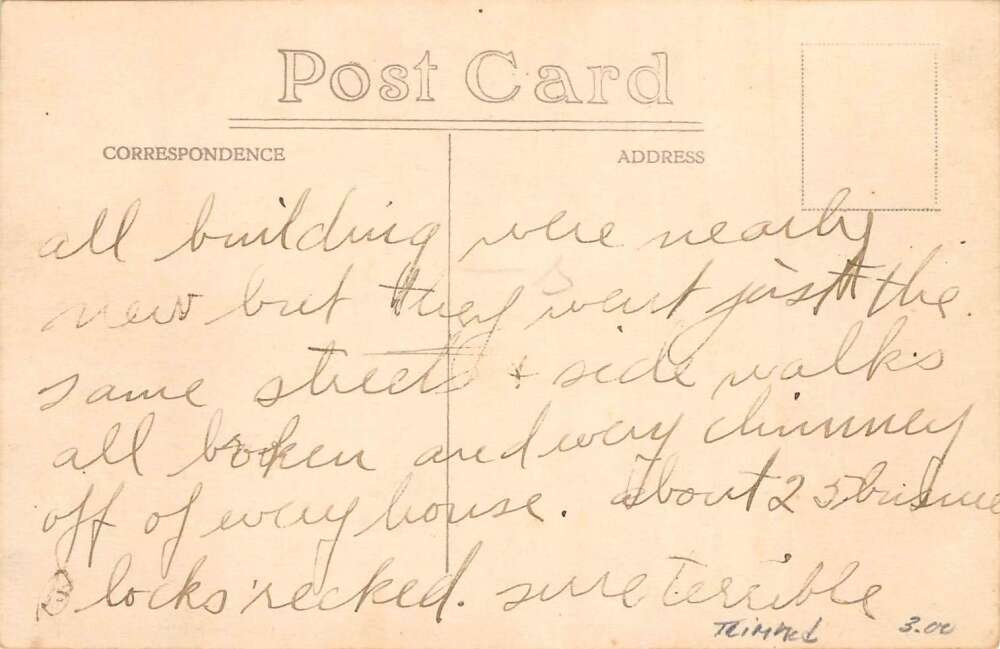 Post Card
CORRESPONDENCE
ADDRESS
all building were nearby
new but they went just the
same streets + side walks
all broken and every chimney
off of every house. about 25
locks recked. sure terrible
3.00